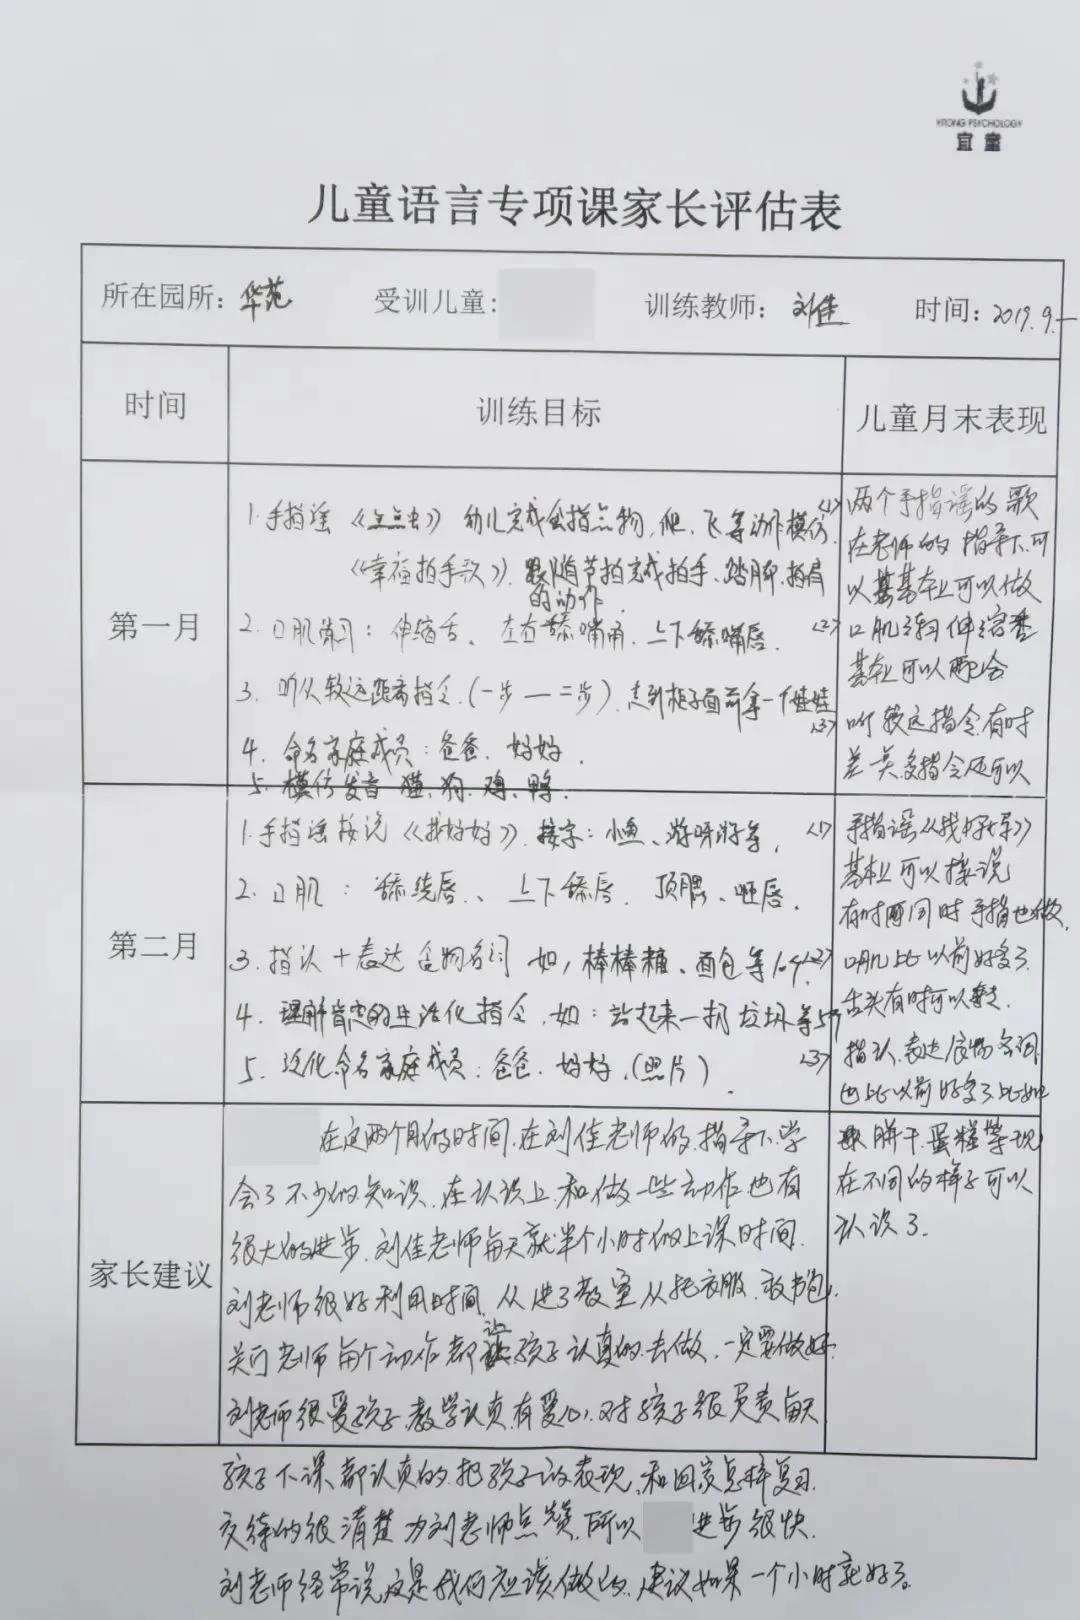 YITONG PSYCHOLOGY
宜童
儿童语言专项课家长评估表
所在园所：华苑 受训儿童： 训练教师：刘佳 时间：2019.9.
时间 训练目标 儿童月末表现
第一月
1.手指谣《点点虫》幼儿完成食指点物，爬、飞等动作模仿.
《幸福拍手歌》.跟随节拍完成拍手、踏脚、拍肩
的动作.
2.口肌练习：伸缩舌、左右舔嘴角、上下舔嘴唇.
3.听从较远距离指令.(一步—二步).走到柜子面前拿一个娃娃
4.命名家庭成员：爸爸、奶奶.
5.模仿发音 猫、狗、鸡、鸭.
<1>两个手指谣的歌
在老师的指导下.可
以基本上可以做
<2>口肌练习伸缩舌
基本上可以配合
<3>听较远指令.有时
差 关.多指令还可以
第二月
1.手指谣接说《找好好》.接字：小鱼、游呀游等.
2.口肌：舔绕唇、上下舔唇、顶腮、咂唇.
3.指认+表达 食物名词 如，棒棒糖、面包等10个
4.理解肯定的生活化指令.如：站起来—扔垃圾等5个
5.泛化命名家庭成员：爸爸、奶奶.(照片).
<1>手指谣《找好好》
基本上可以接说
有时同时手指也做.
<2>口肌比以前好多了.
舌头有时可以
<3>指认.表达食物名词.
也比以前好多了.比如
饼干.蛋糕等.现
在不同的样子可以
认识了.
家长建议
在这两个月的时间.在刘佳老师的指导下.学
会了不少的知识.在认识上.和做一些动作也有
很大的进步.刘佳老师每天就半个小时的上课时间.
刘老师很好利用时间.从进了教室从托衣服.放书包.
关门 老师每个动作都让孩子认真的去做.一定要做好.
刘老师很爱孩子.教学认真.有爱心.对孩子很负责.每天
孩子下课都认真的.把孩子的表现.和回家怎样复习.
交待的很清楚.为刘老师点赞.所以 进步很快.
刘老师经常说这是我们应该做的.建议如果一个小时就好了。